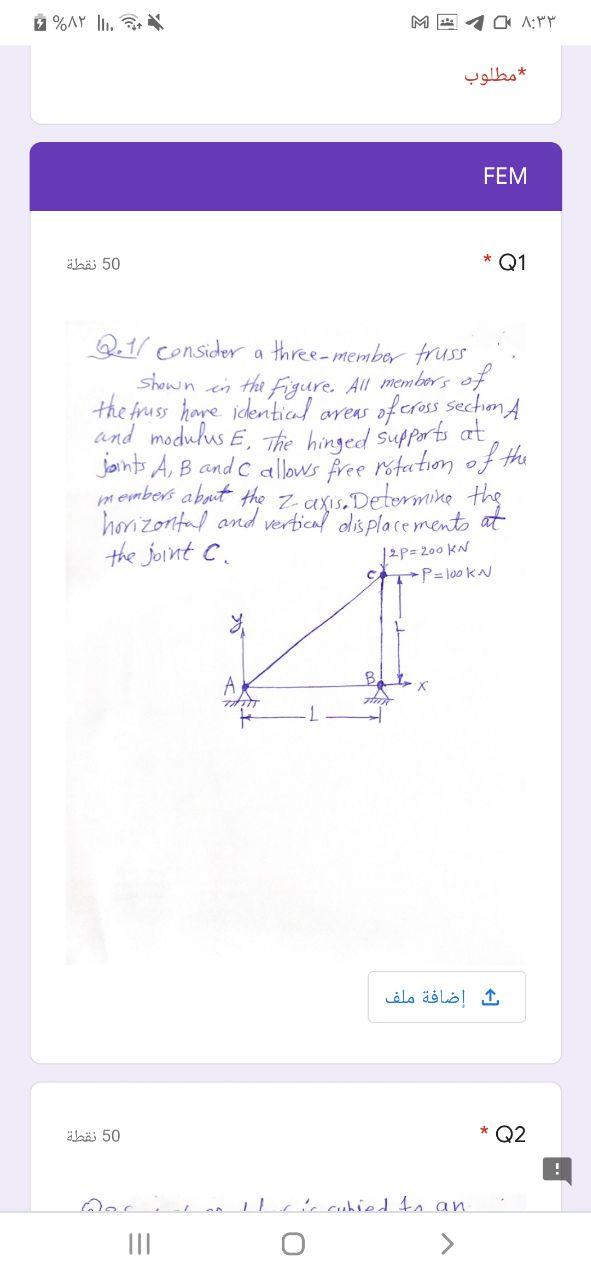 %٨٢ ٨:٣٣
*مطلوب
FEM
50 نقطة * Q1
Q.1/ consider a three-member truss
shown in the Figure. All members of
the truss have identical areas of cross section A
and modulus E. The hinged supports at
joints A, B and C allows free rotation of the
members about the Z-axis. Determine the
horizontal and vertical displacements at
the joint C.
2P=200 kN
C P=100 kN
y
L
A B x
L
إضافة ملف
50 نقطة * Q2
an